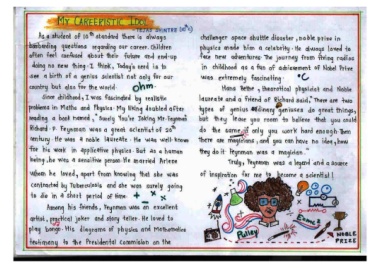 MY CAREERISTIC IDOL
As a student of 10th standard there is always
bombarding questions regarding our career. Children
often feel confused about their future and end-up
doing no new thing. I think, Today's need is to
see a birth of a genius scientist not only for our
country but also for the world.
Ohm
Since childhood, I was fascinated by realistic
problems in Maths and Physics. My liking doubled after
reading a book named, "Surely You're Joking Mr. Feynman!
Richard. P. Feynman was a great scientist of 20th
century. He was a noble laureate. He was well known
for his work in applicative physics. But as a human
being, he was a sensitive person. He married Arlene
whom he loved, apart from knowing that she was
contracted by Tuberculosis and she was surely going
to die in a short period of time.
Among his friends, Feynman was an excellent
artist, practical joker and story teller. He loved to
play bongo. His diagrams of physics and Mathematics
testimony to the Presidential Commission on the
challenger space shuttle disaster, noble prize in
physics made him a celebrity. He always loved to
face new adventures. The journey from fixing radios
in childhood as a fan of achievement of Nobel Prize
was extremely fascinating.
°C
Hans Bethe, theoretical physicist and Noble
laureate and a friend of Richard said, "There are two
types of genius. Ordinary geniuses do great things,
but they leave you room to believe that you could
do the same if only you work hard enough. Then
there are magicians, and you can have no idea, how
they do it. Feynman was a magician."
Truly, Feynman was a legend and a source
of inspiration for me to become a scientist!
Pulley
NOBLE
PRIZE